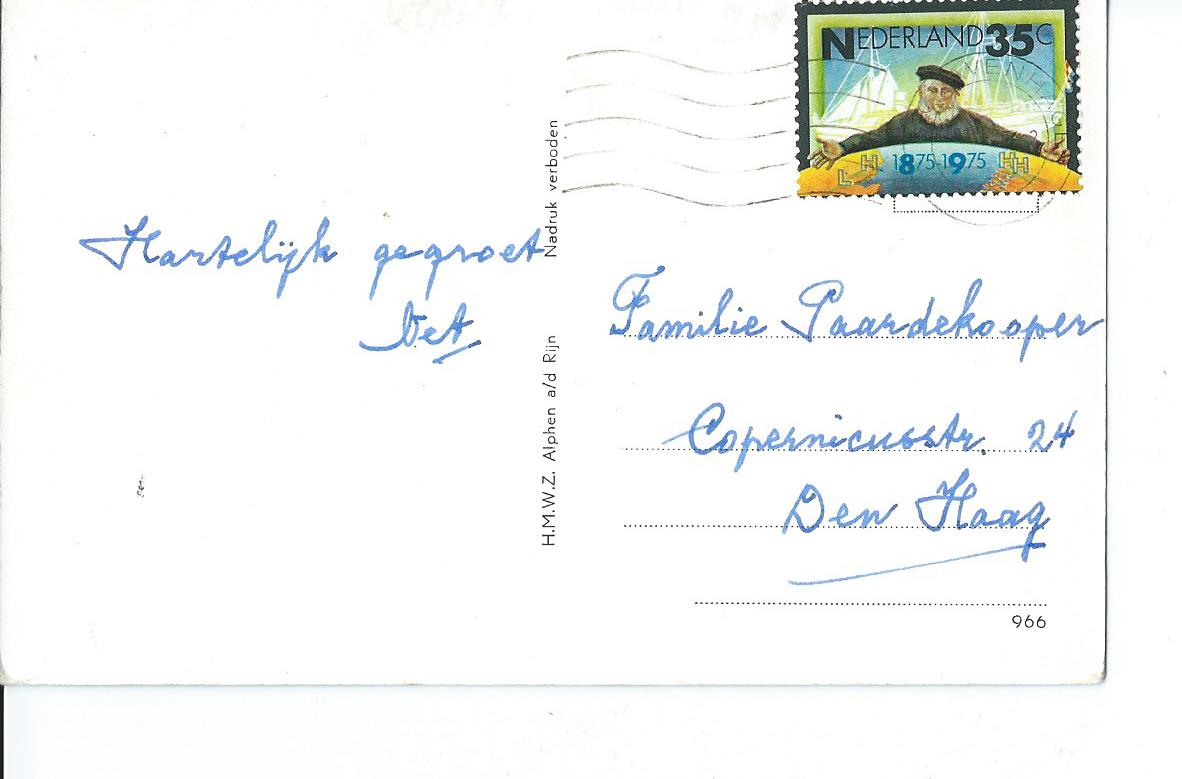 NEDERLAND 35C
1875-1975
Hartelijk gegroet
Nadruk verboden
H.M.W.Z. Alphen a/d Rijn
Familie Paardekooper
Copernicusstr. 24
Den Haag
966